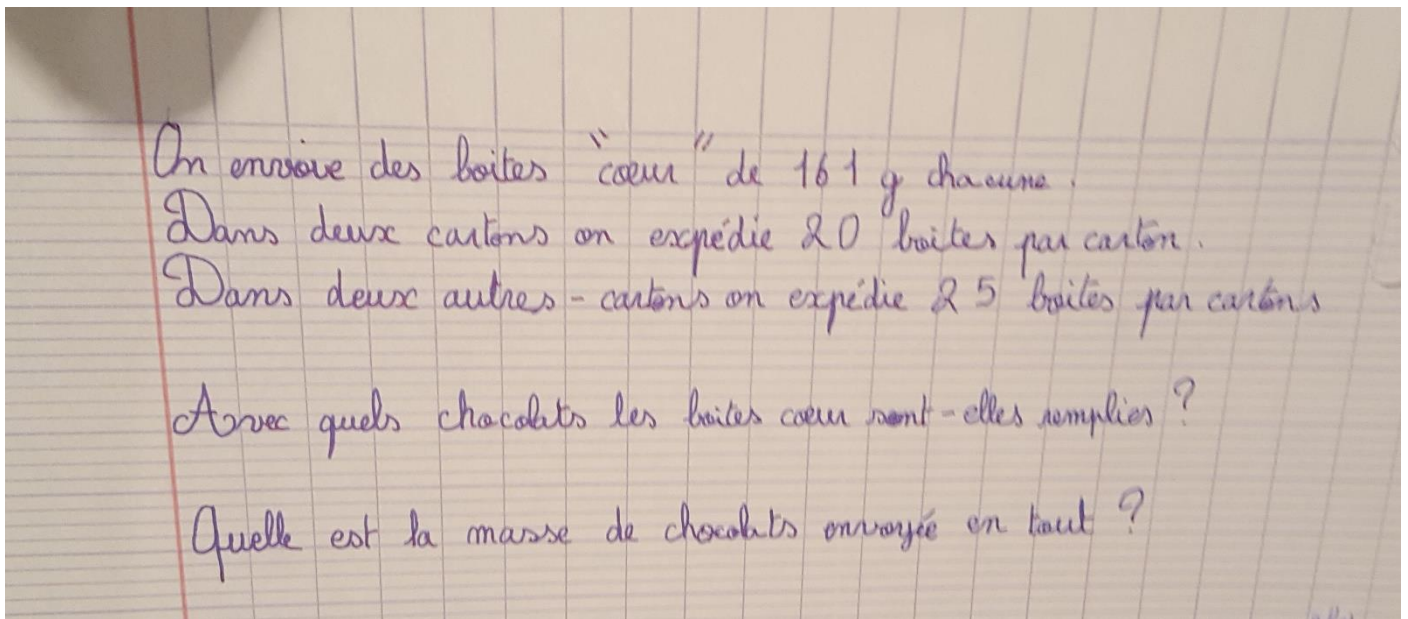 On envoie des boites "coeur" de 161 g chacune.
Dans deux cartons on expédie 20 boites par carton.
Dans deux autres-cartons on expédie 25 boites par cartons
Avec quels chocolats les boites coeur sont-elles remplies ?
Quelle est la masse de chocolats envoyée en tout ?